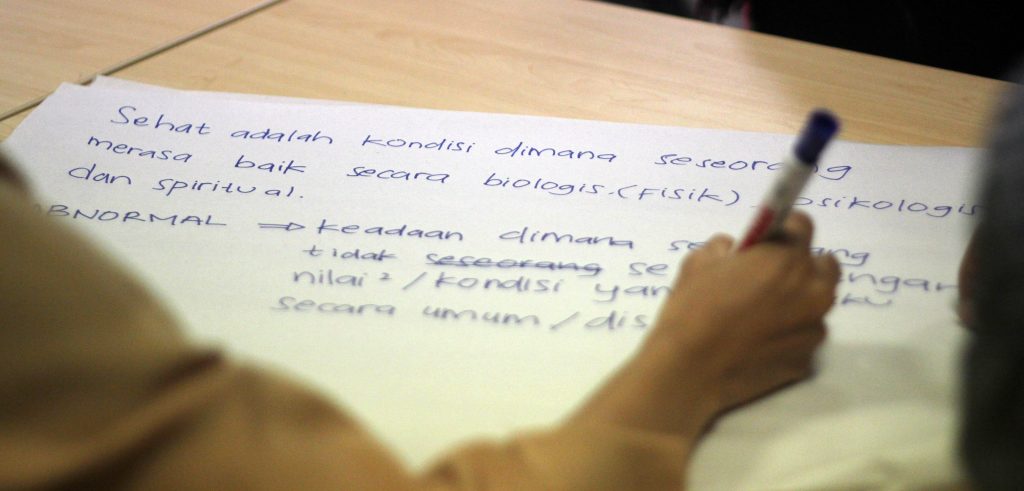 Sehat adalah kondisi dimana seseorang
merasa baik secara biologis.(Fisik) psikologis
dan spiritual.
ABNORMAL ⇒ keadaan dimana
tidak seseorang
nilai² / kondisi
secara umum /